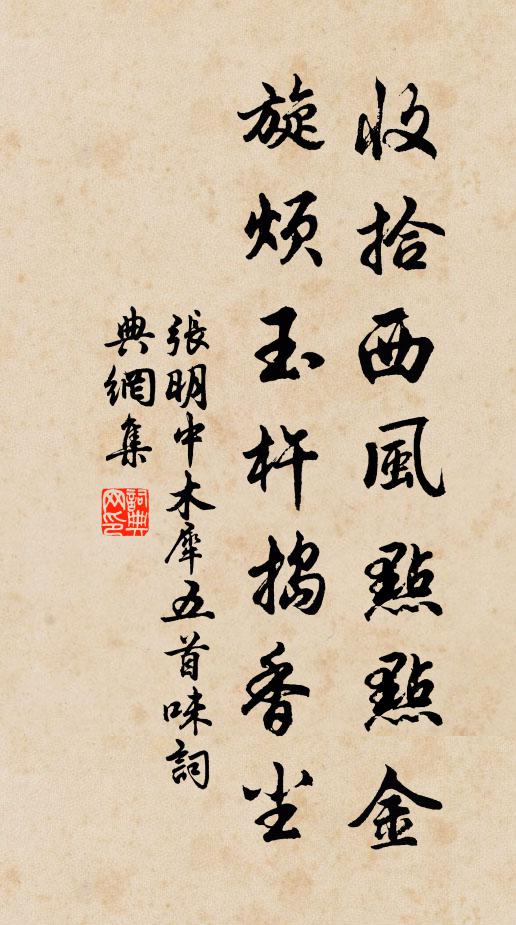 收拾西風點點金
旋煩玉杵搗香尘
張明中木犀五首味詞
典網集
詞典網印